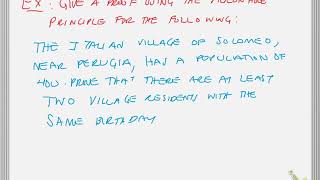 EX: GIVE A PROOF USING THE PIGEONHOLE
PRINCIPLE FOR THE FOLLOWING:
THE ITALIAN VILLAGE OF SOLOMEO,
NEAR PERUGIA, HAS A POPULATION OF
400. PROVE THAT THERE ARE AT LEAST
TWO VILLAGE RESIDENTS WITH THE
SAME BIRTHDAY